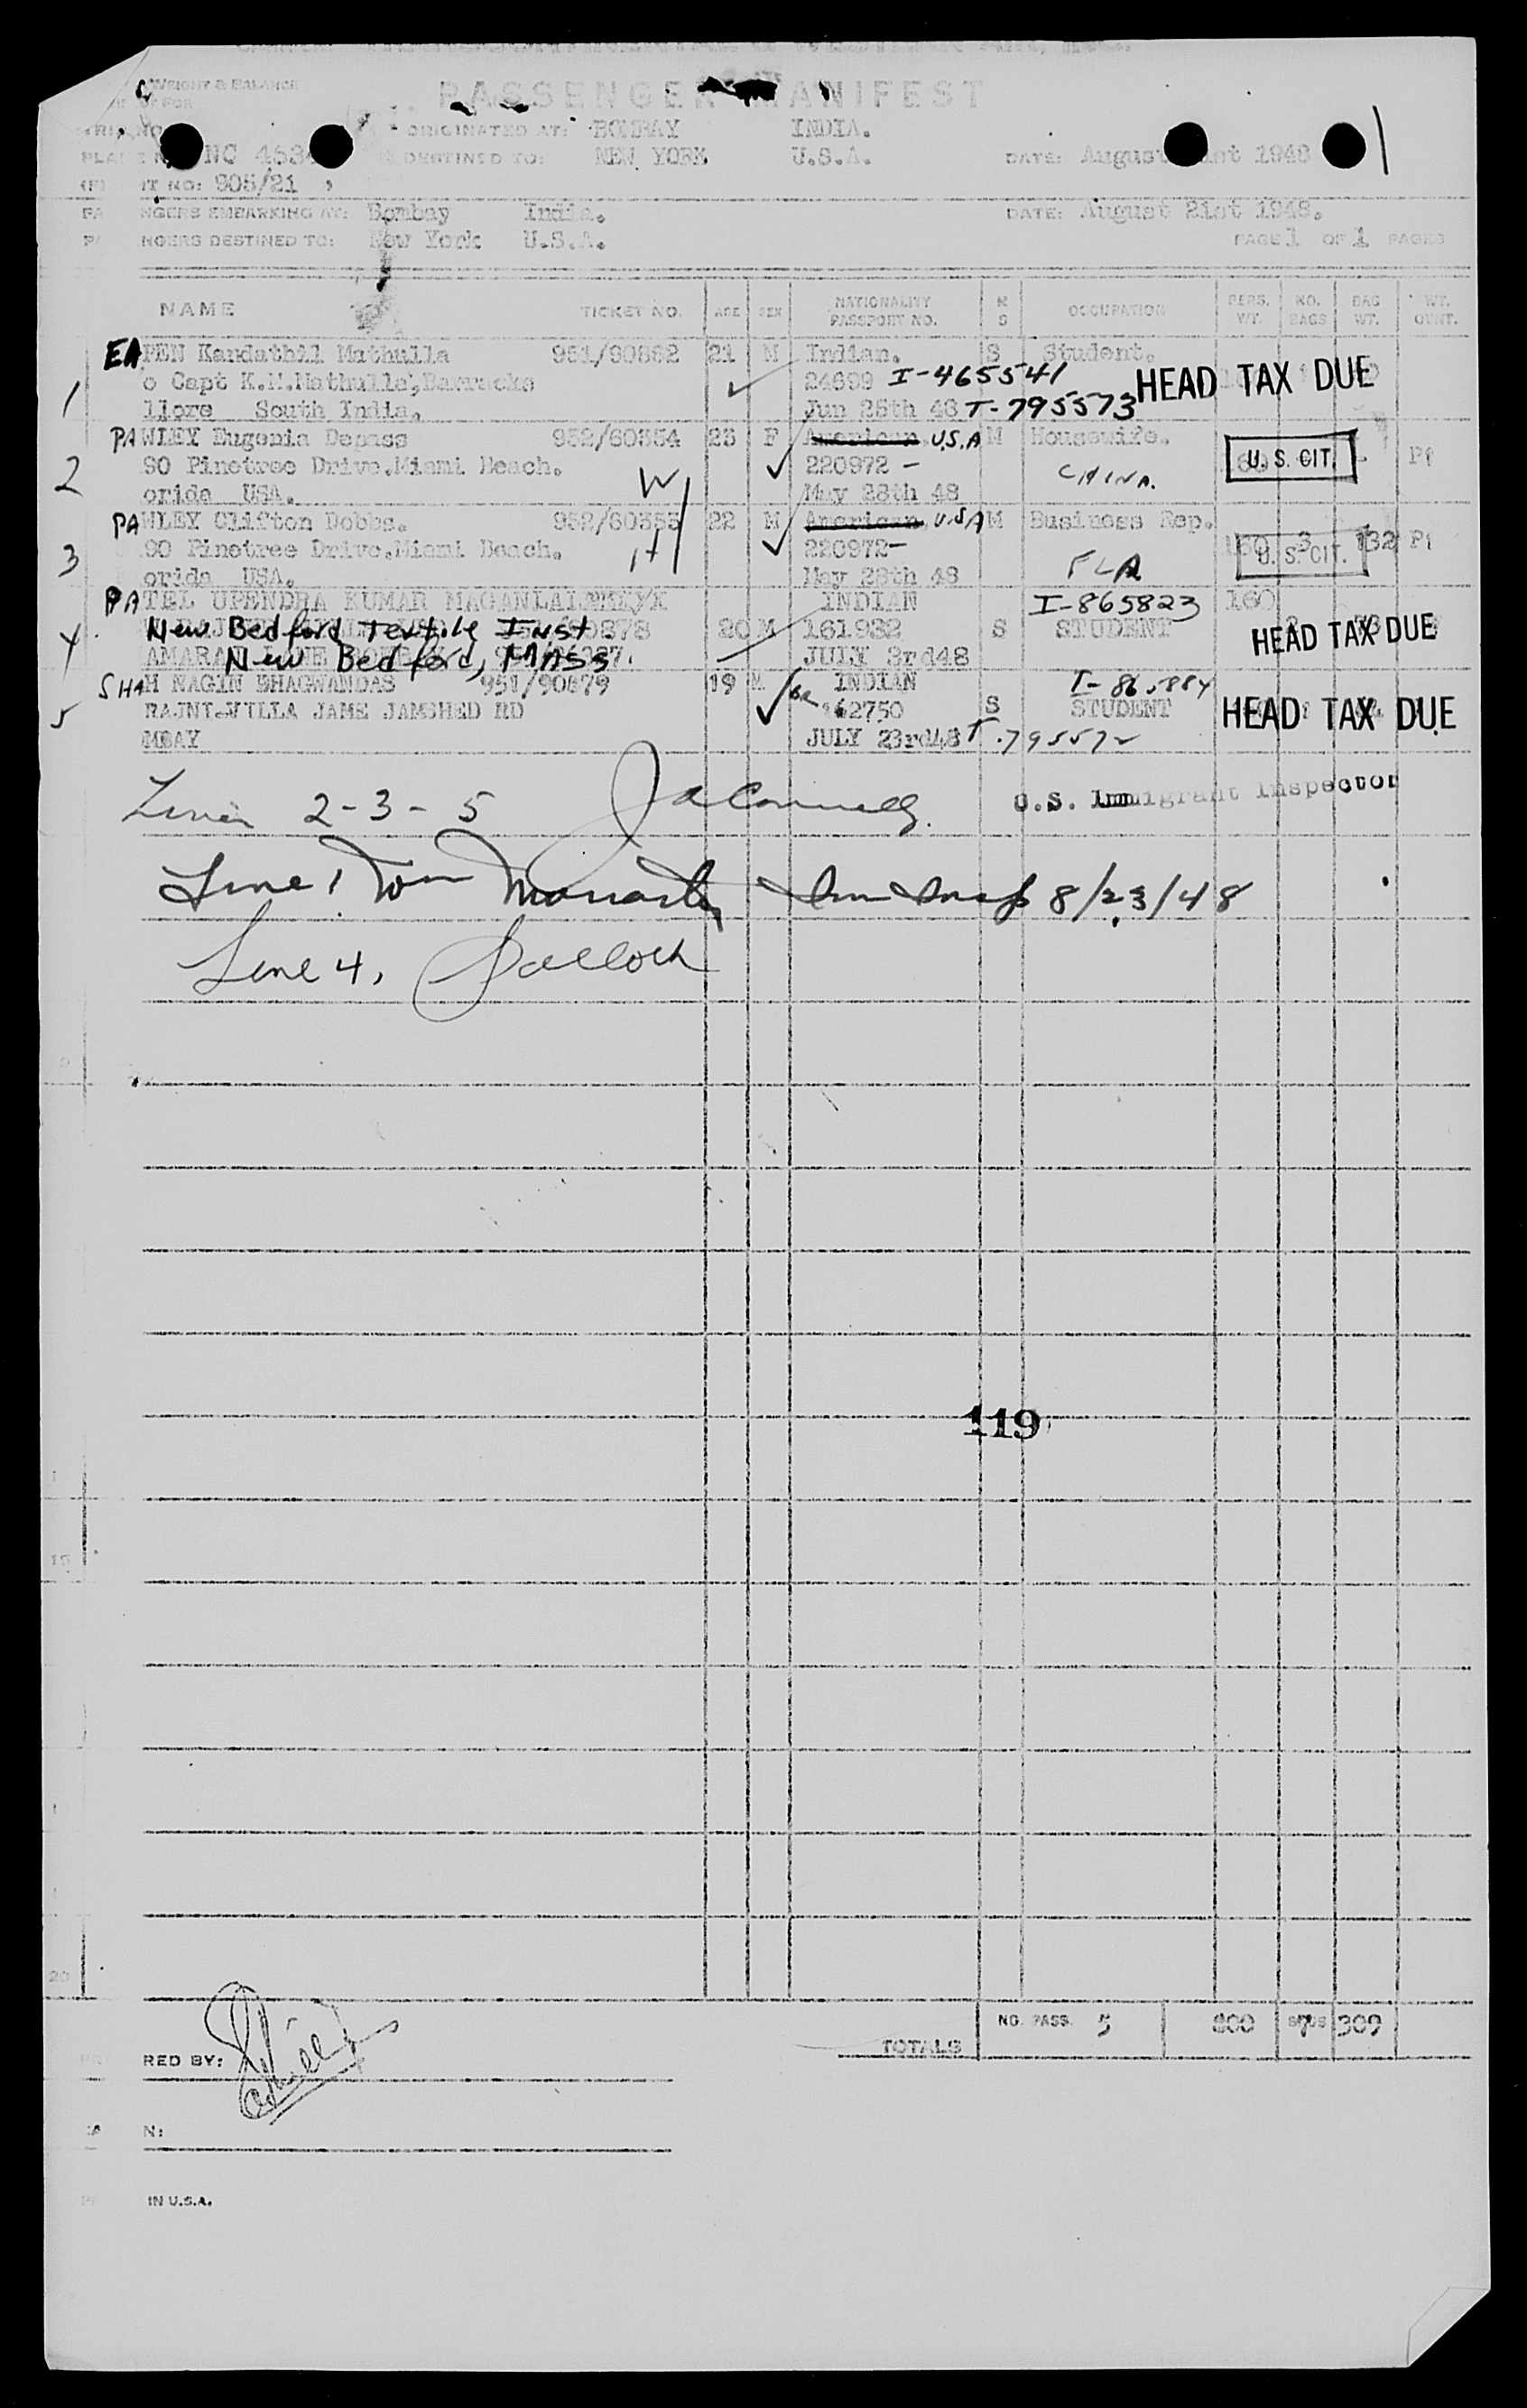 WEIGHT & BALANCE
PASSENGER MANIFEST
FOR
ORIGINATED AT: BOMBAY INDIA.
NC 4534 DESTINED TO: NEW YORK U.S.A. DATE: August 1948
IT NO: 905/21
NGERS EMBARKING AT: Bombay India. DATE: August 21st 1948.
NGERS DESTINED TO: New York U.S.A. PAGE 1 OF 1 PAGES
NAME TICKET NO. AGE SEX NATIONALITY PASSPORT NO. M S OCCUPATION PERS. WT. NO. BAGS BAG WT. WT. OUNT.
EAPEN Kandathil Mathulla 951/90862 21 M Indian. S Student.
1 o Capt K.M.Mathulla,Barracks 24699 I-465541 HEAD TAX DUE
llore South India. Jun 25th 48 T-795573
PAWLEY Eugenia Depass 952/60354 23 F American U.S.A M Housewife.
2 90 Pinetree Drive.Miami Beach. W 220972 - CHINA. U. S. CIT. P1
orida USA. May 28th 48
PAWLEY Clifton Dobbs. 952/60355 22 M American U.S.A M Business Rep.
3 90 Pinetree Drive.Miami Beach. 220972- FLA 160 3 132 P1
U. S. CIT.
orida USA. May 28th 48
PATEL UPENDRA KUMAR MAGANLAL INDIAN I-865823 160
4 New Bedford Textile Inst 20 M 161932 S STUDENT HEAD TAX DUE
New Bedford, MASS JULY 3rd48
SHAH NAGIN BHAGWANDAS 951/90879 19 M INDIAN
5 RAJNI.VILLA JAME JAMSHED RD 162750 S STUDENT HEAD TAX DUE
MBAY JULY 23rd48 T.795572
Lines 2-3-5 U.S. Immigrant Inspector
Line 1 Imm Insp 8/23/48
Line 4,
119
15
20
TOTALS NO. PASS. 5 800 7 309
RED BY:
N:
IN U.S.A.